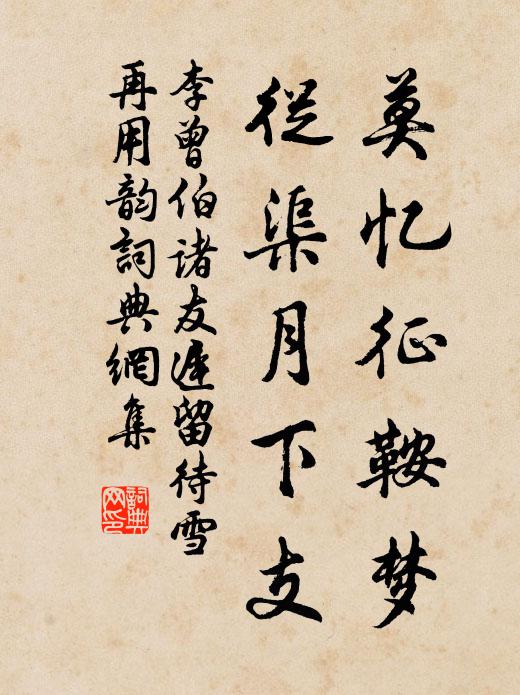 莫忆征鞍梦
从渠月下支
李曾伯诸友遲留待雪
再用韵詞典網集
詞典网印